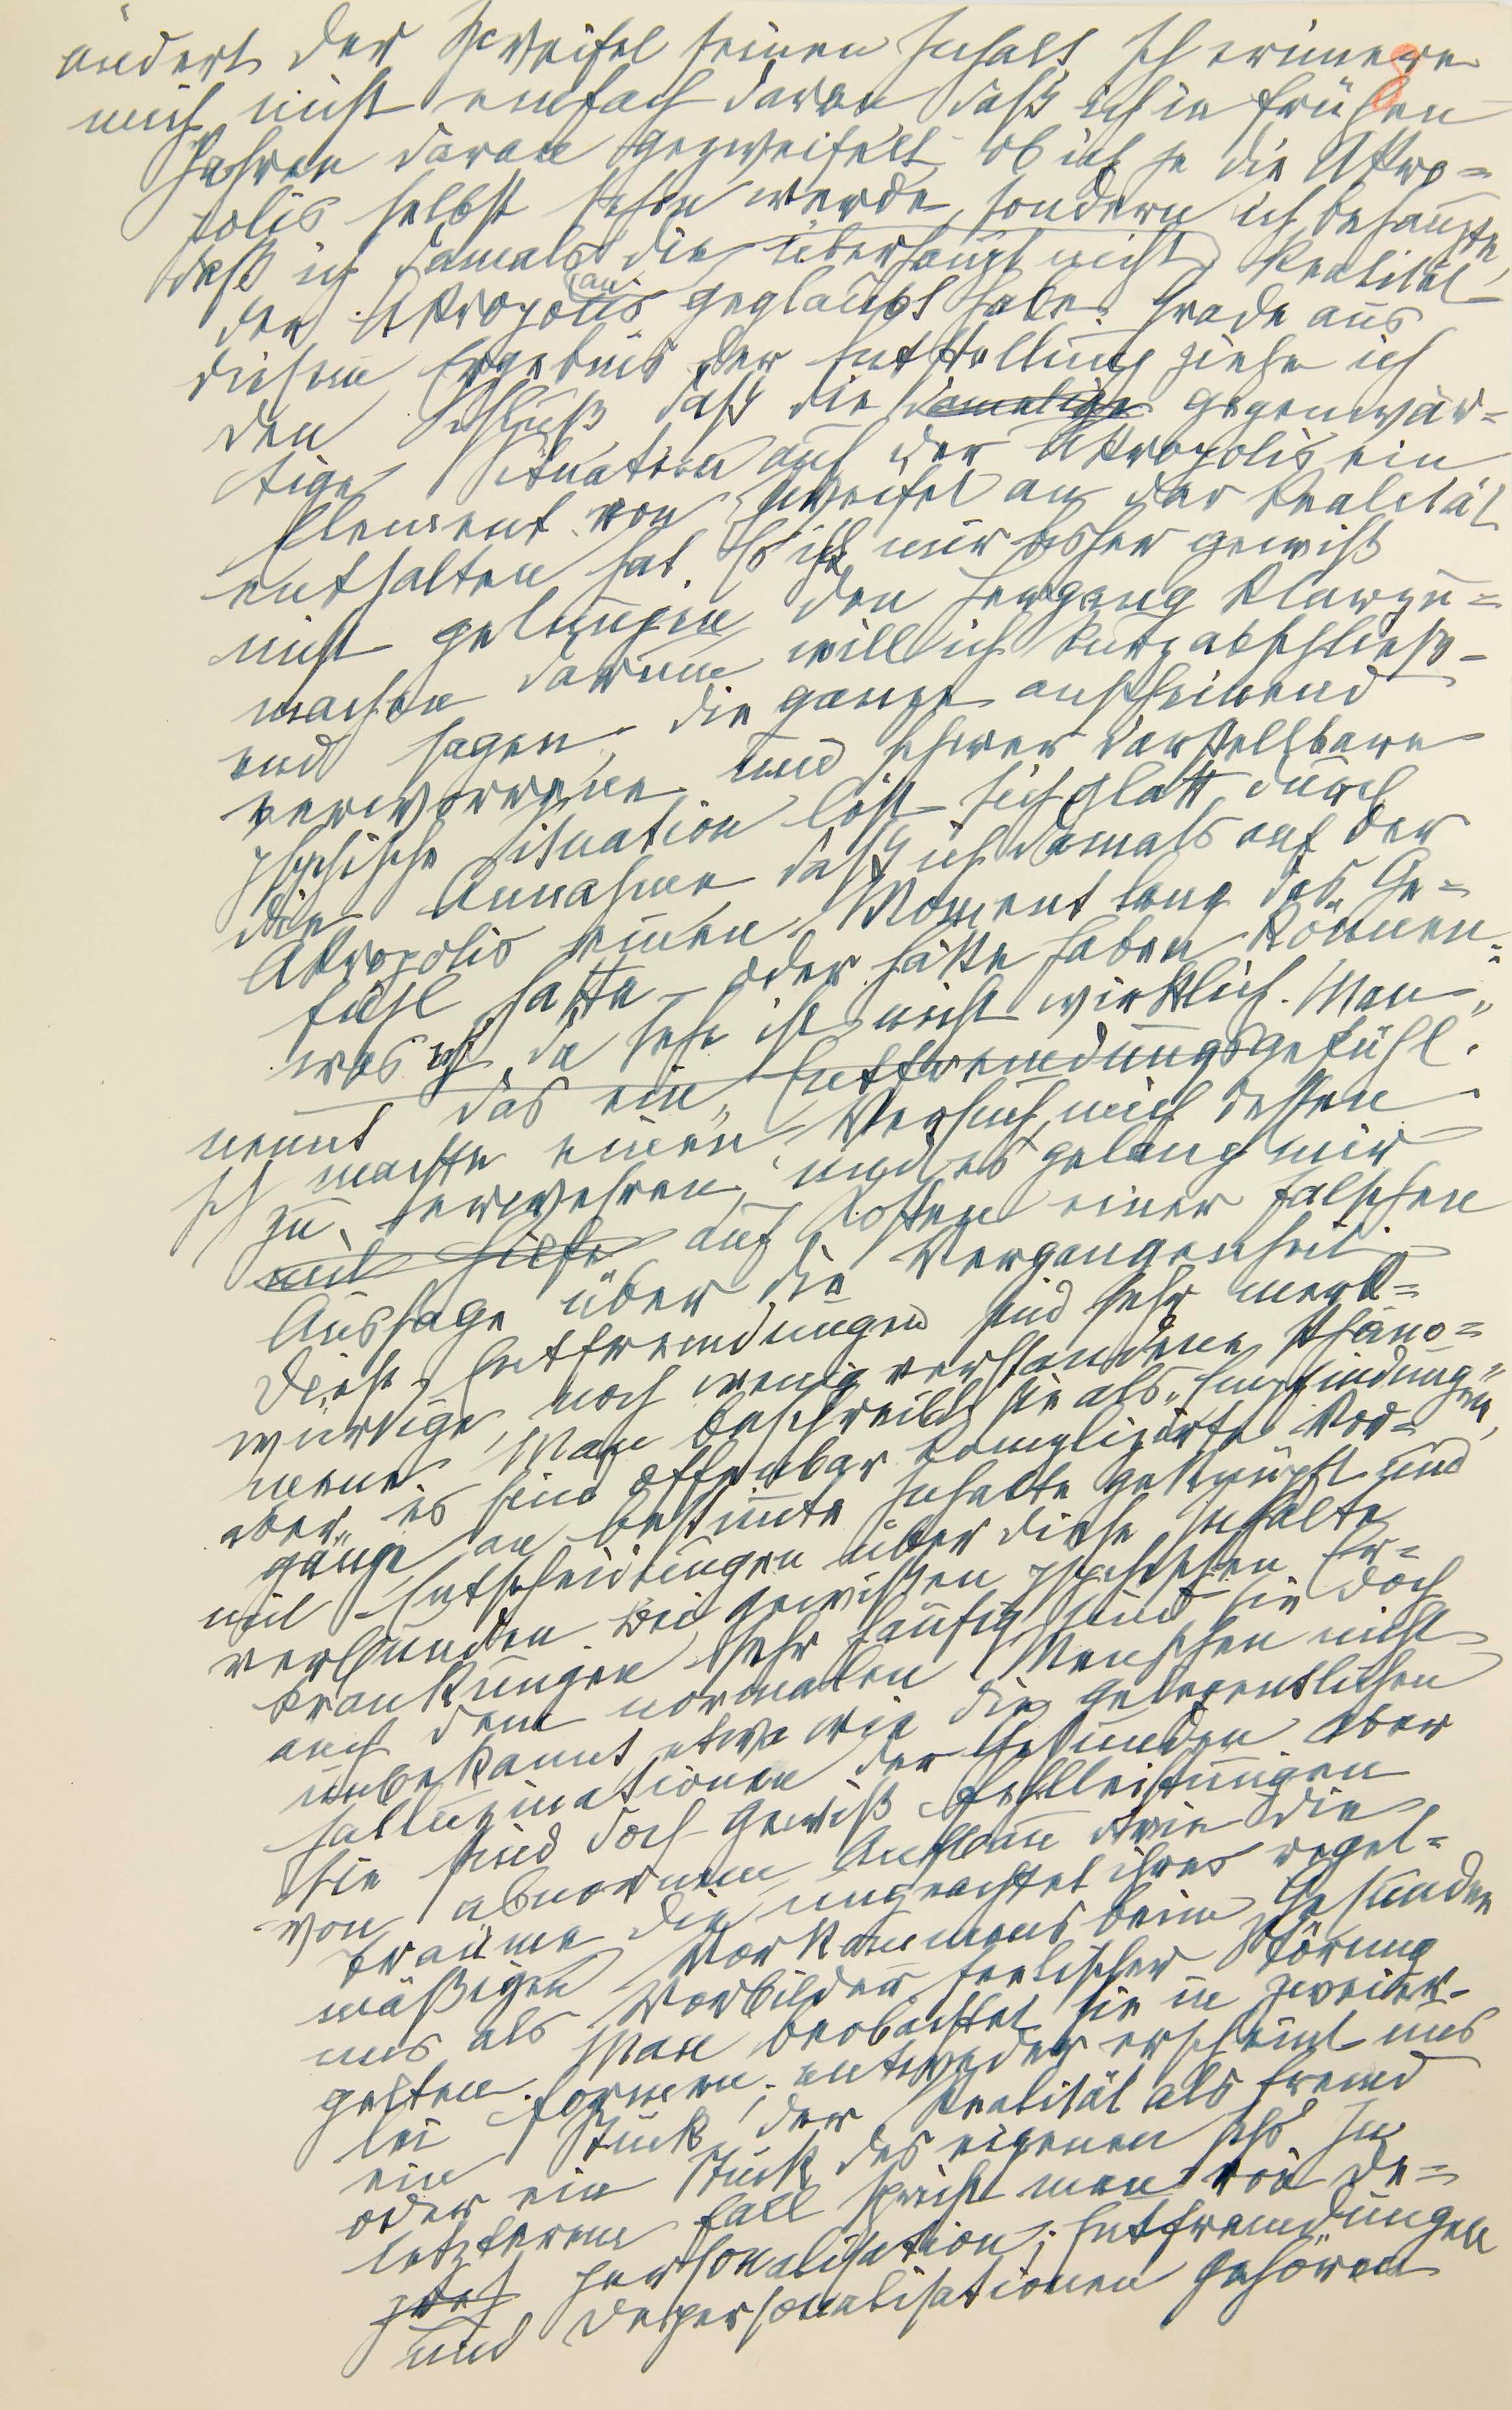 8
ändert der Zweifel seinen Inhalt. Ich erinnere
mich nicht einfach daran, daß ich in frühen
Jahren daran gezweifelt, ob ich je die Akro=
polis selbst sehen werde, sondern ich behaupte,
daß ich damals (an) die überhaupt nicht Realität
der Akropolis geglaubt habe. Grade aus
diesem Ergebnis der Entstellung ziehe ich
den Schluß, daß die damalige gegenwär=
tige Situation auf der Akropolis ein
Element von Zweifel an der Realität
enthalten hat. Es ist mir bisher gewiß
nicht gelungen den Hergang klarzu=
machen darum will ich kurz abschließ-
end sagen, die ganze anscheinend
verworrene und schwer darstellbare
psychische Situation löst sich glatt durch
die Annahme, daß ich damals auf der
Akropolis einen Moment lang das Ge=
fühl hatte – oder hätte haben können:
was ich da sehe ist nicht wirklich. Man
nennt das ein „Entfremdungsgefühl".
Ich machte einen Versuch, mich dessen
zu erwehren, und es gelang mir
mit Hilfe auf Kosten einer falschen
Aussage über die Vergangenheit.
Diese Entfremdungen sind sehr merk=
würdige, noch wenig verstandene Phäno=
mene. Man beschreibt sie als „Empfindungen",
aber es sind offenbar komplizirte Vor=
gänge, an bestimmte Inhalte geknüpft und
mit Entscheidungen über diese Inhalte
verbunden. Bei gewissen psychischen Er=
krankungen sehr häufig, sind sie doch
auch dem normalen Menschen nicht
unbekannt, etwa wie die gelegentlichen
Halluzinationen der Gesunden. Aber
sie sind doch gewiß Fehlleistungen
von abnormem Aufbau wie die
Träume, die ungeachtet ihres regel=
mäßigen Vorkommens beim Gesunden
uns als Vorbilder seelischer Störung
gelten. Man beobachtet sie in zweier-
lei Formen; entweder erscheint uns
ein Stück der Realität als fremd
oder ein Stück des eigenen Ichs. In
letzterem Fall spricht man von „De=
personalisation"; Entfremdungen
und Depersonalisationen gehören